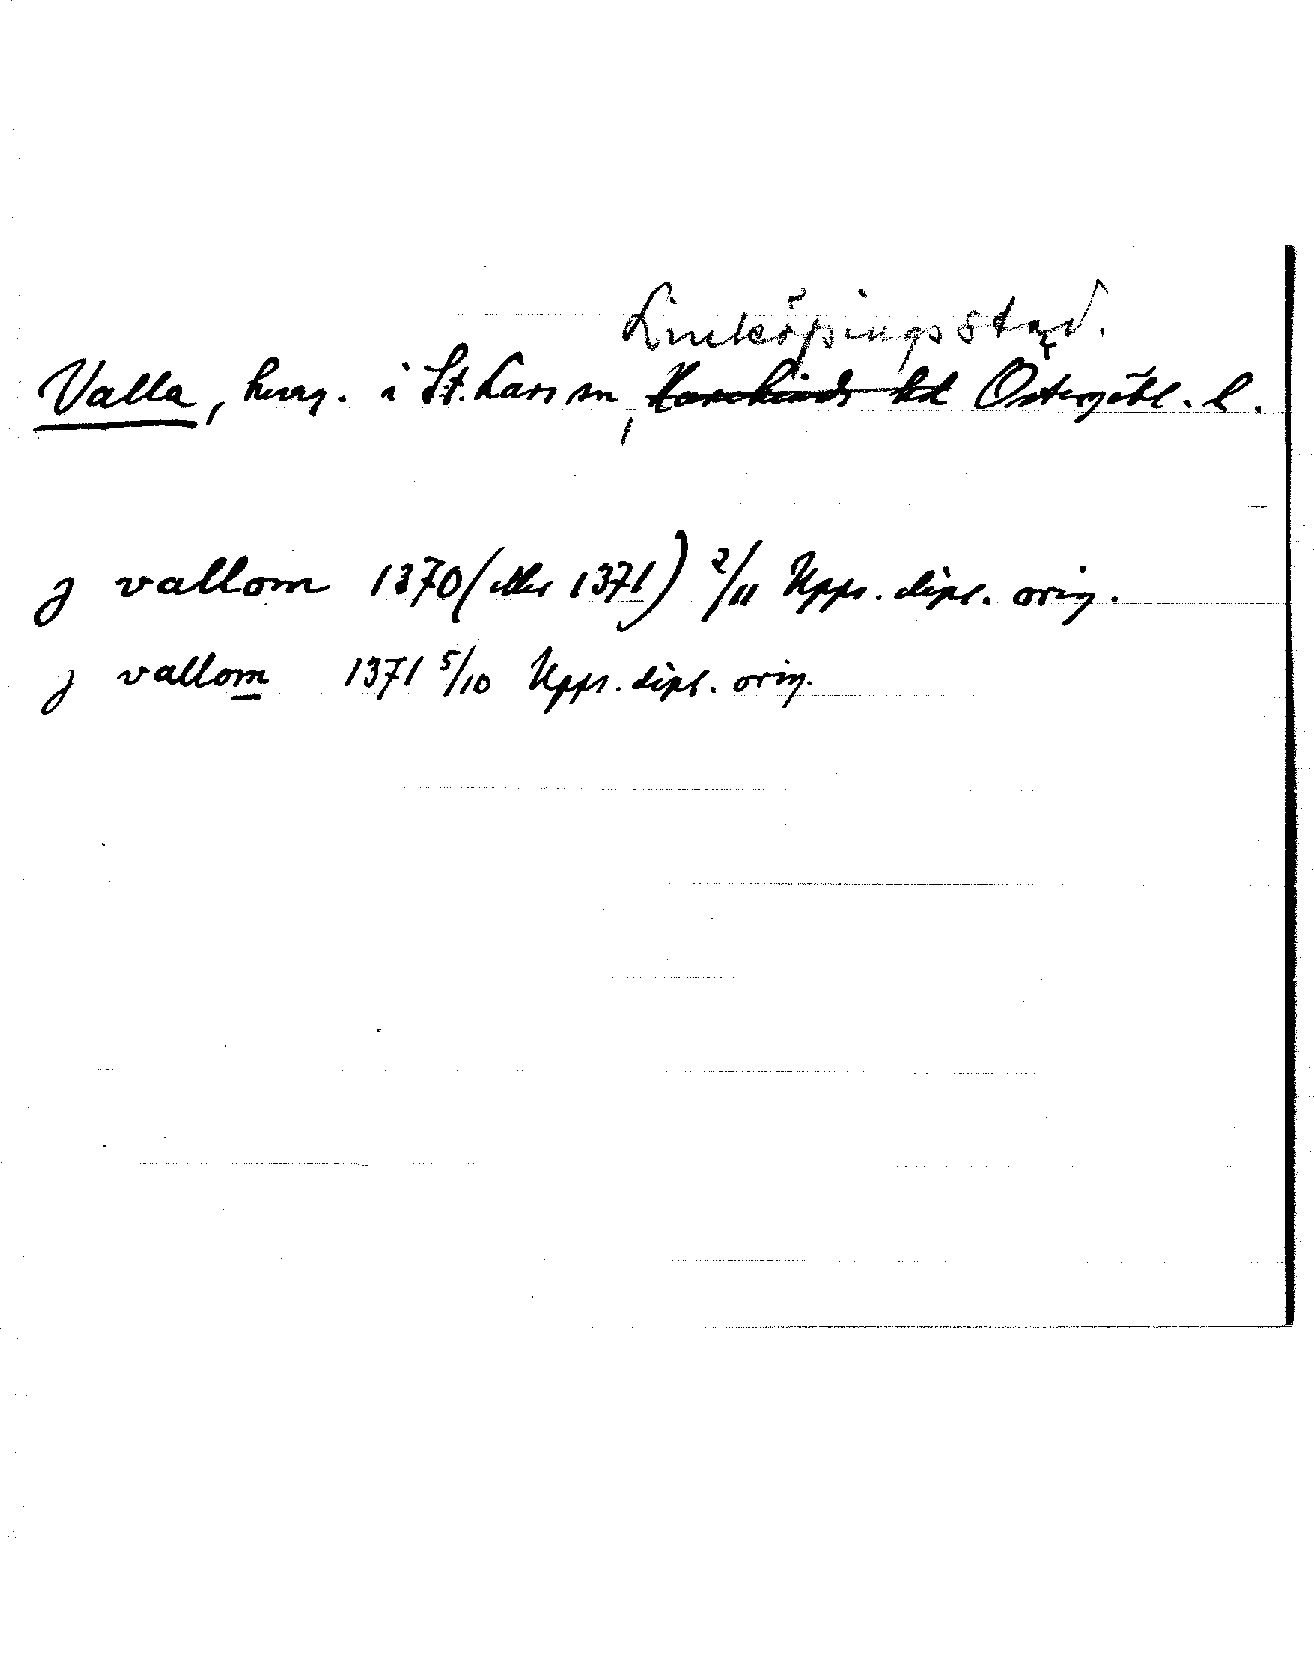 Linköpings stad.
Valla, herrg. i St. Lars sn, Hanekinds hd Östergötl. l.
j vallom 1370 (eller 1371) 2/11 Upps. dipl. orig.
j vallom 1371 5/10 Upps. dipl. orig.